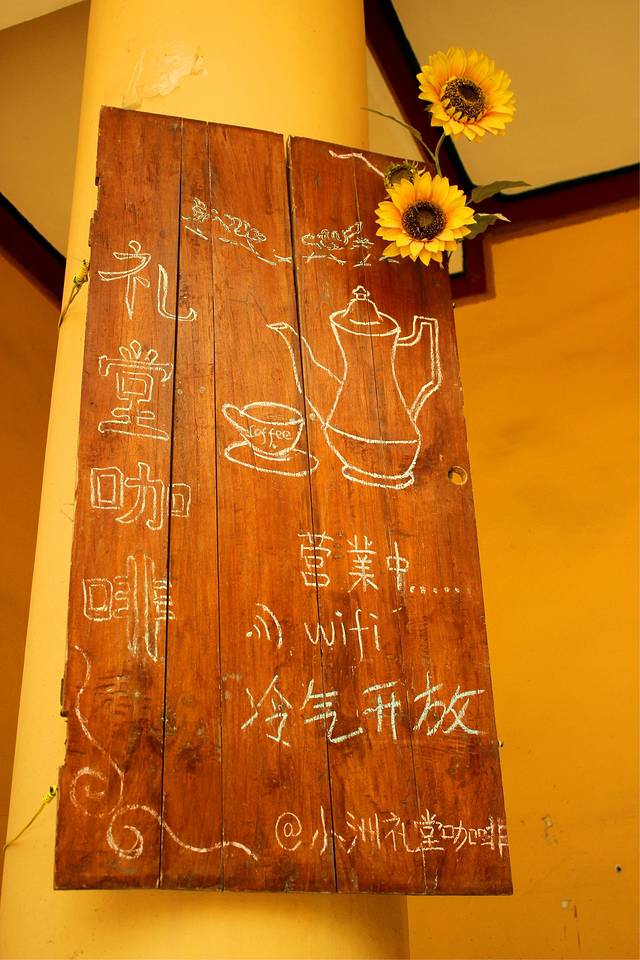 礼堂咖啡
coffee
营業中......
wifi
冷气开放
@小洲礼堂咖啡